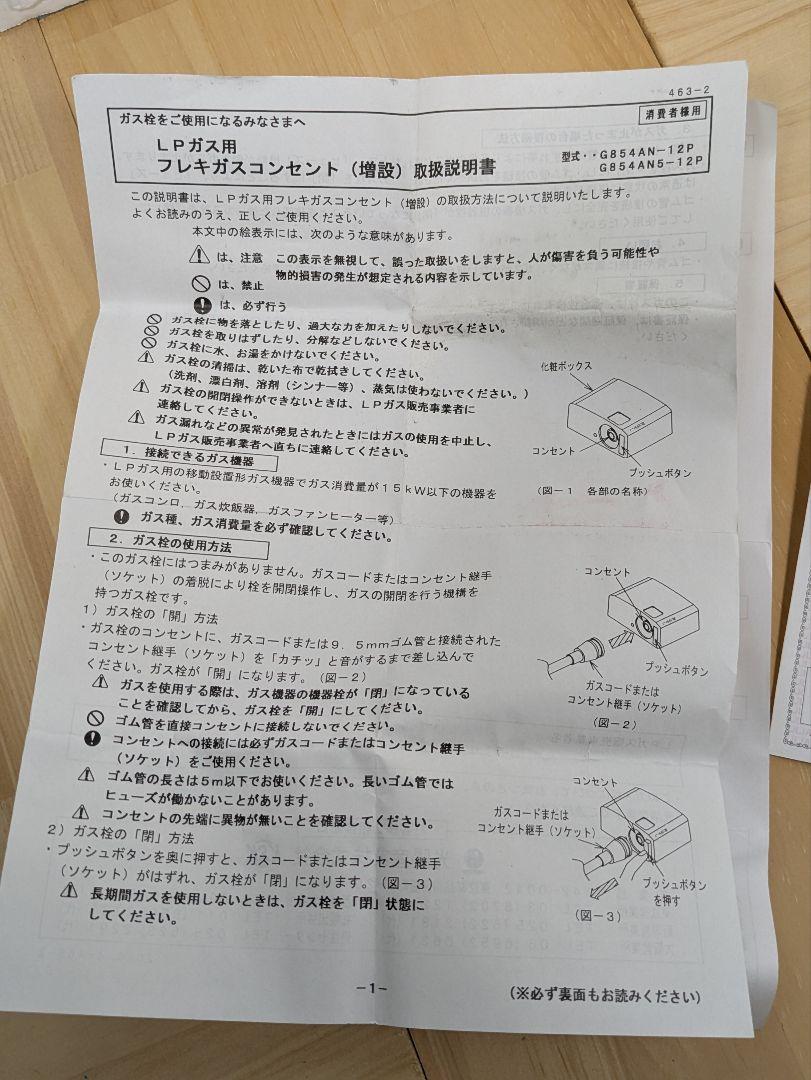 463-2
ガス栓をご使用になるみなさまへ
消費者様用
LPガス用
フレキガスコンセント（増設）取扱説明書
型式・・G854AN-12P
G854AN5-12P
この説明書は、LPガス用フレキガスコンセント（増設）の取扱方法について説明いたします。
よくお読みのうえ、正しくご使用ください。
本文中の絵表示には、次のような意味があります。
は、注意　この表示を無視して、誤った取扱いをしますと、人が傷害を負う可能性や
物的損害の発生が想定される内容を示しています。
は、禁止
は、必ず行う
ガス栓に物を落としたり、過大な力を加えたりしないでください。
ガス栓を取りはずしたり、分解などしないでください。
ガス栓に水、お湯をかけないでください。
ガス栓の清掃は、乾いた布で乾拭きしてください。
（洗剤、漂白剤、溶剤（シンナー等）、蒸気は使わないでください。）
ガス栓の開閉操作ができないときは、LPガス販売事業者に
連絡してください。
ガス漏れなどの異常が発見されたときにはガスの使用を中止し、
LPガス販売事業者へ直ちに連絡してください。
化粧ボックス
コンセント
プッシュボタン
（図－1　各部の名称）
1．接続できるガス機器
・LPガス用の移動設置形ガス機器でガス消費量が15kW以下の機器を
お使いください。
（ガスコンロ，ガス炊飯器，ガスファンヒーター等）
ガス種、ガス消費量を必ず確認してください。
2．ガス栓の使用方法
・このガス栓にはつまみがありません。ガスコードまたはコンセント継手
（ソケット）の着脱により栓を開閉操作し、ガスの開閉を行う機構を
持つガス栓です。
1）ガス栓の「開」方法
・ガス栓のコンセントに、ガスコードまたは9．5mmゴム管と接続された
コンセント継手（ソケット）を「カチッ」と音がするまで差し込んで
ください。ガス栓が「開」になります。（図－2）
ガスを使用する際は、ガス機器の機器栓が「閉」になっている
ことを確認してから、ガス栓を「開」にしてください。
ゴム管を直接コンセントに接続しないでください。
コンセントへの接続には必ずガスコードまたはコンセント継手
（ソケット）をご使用ください。
ゴム管の長さは5m以下でお使いください。長いゴム管では
ヒューズが働かないことがあります。
コンセントの先端に異物が無いことを確認してください。
コンセント
プッシュボタン
ガスコードまたは
コンセント継手（ソケット）
（図－2）
2）ガス栓の「閉」方法
・プッシュボタンを奥に押すと、ガスコードまたはコンセント継手
（ソケット）がはずれ、ガス栓が「閉」になります。（図－3）
長期間ガスを使用しないときは、ガス栓を「閉」状態に
してください。
コンセント
ガスコードまたは
コンセント継手（ソケット）
プッシュボタン
を押す
（図－3）
－1－
（※必ず裏面もお読みください）